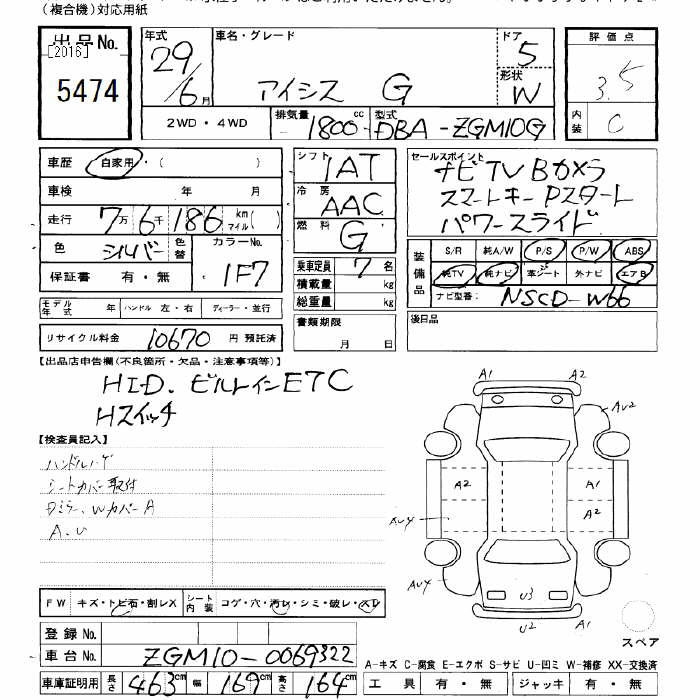 (複合機)対応用紙
出品No.
[2016]
5474
年式 29/6月
車名・グレード
アイシス G
ドア 5
形状 W
評価点
3.5
内装 C
2WD・4WD
排気量 1800 cc
型式 DBA-ZGM10G
車歴 自家用・( )
車検 年 月
走行 7万6千186 km マイル( )
色 シルバー
色替
カラーNo. 1F7
保証書 有・無
シフト 1AT
冷房 AAC
燃料 G
乗車定員 7名
積載量 kg
総重量 kg
セールスポイント
ナビTV Bカメラ
スマートキー Pスタート
パワースライド
装備品
S/R 純A/W P/S P/W ABS
純TV 純ナビ 革シート 外ナビ エアB
ナビ型番: NSCD-W66
モデル年式 年 ハンドル 左・右 ディーラー・並行
書類期限
月 日
後日品
リサイクル料金 10670 円 預託済
【出品店申告欄(不良箇所・欠品・注意事項等)】
HID. ビルトインETC
Hスイッチ
【検査員記入】
シートカバー取付
Dミラー、WカバーA
A.U
A1 A2
AU2
A2 A1
A2
AU4
AU4
U3
U2 A1
スペア
FW キズ・トビ石・割レX シート内装 コゲ・穴・汚レ・シミ・破レ・スレ
登録No.
車台No. ZGM10-0069322
車庫証明用 長さ 463cm 幅 169cm 高さ 164cm
A-キズ C-腐食 E-エクボ S-サビ U-凹ミ W-補修 XX-交換済
工具 有・無 ジャッキ 有・無